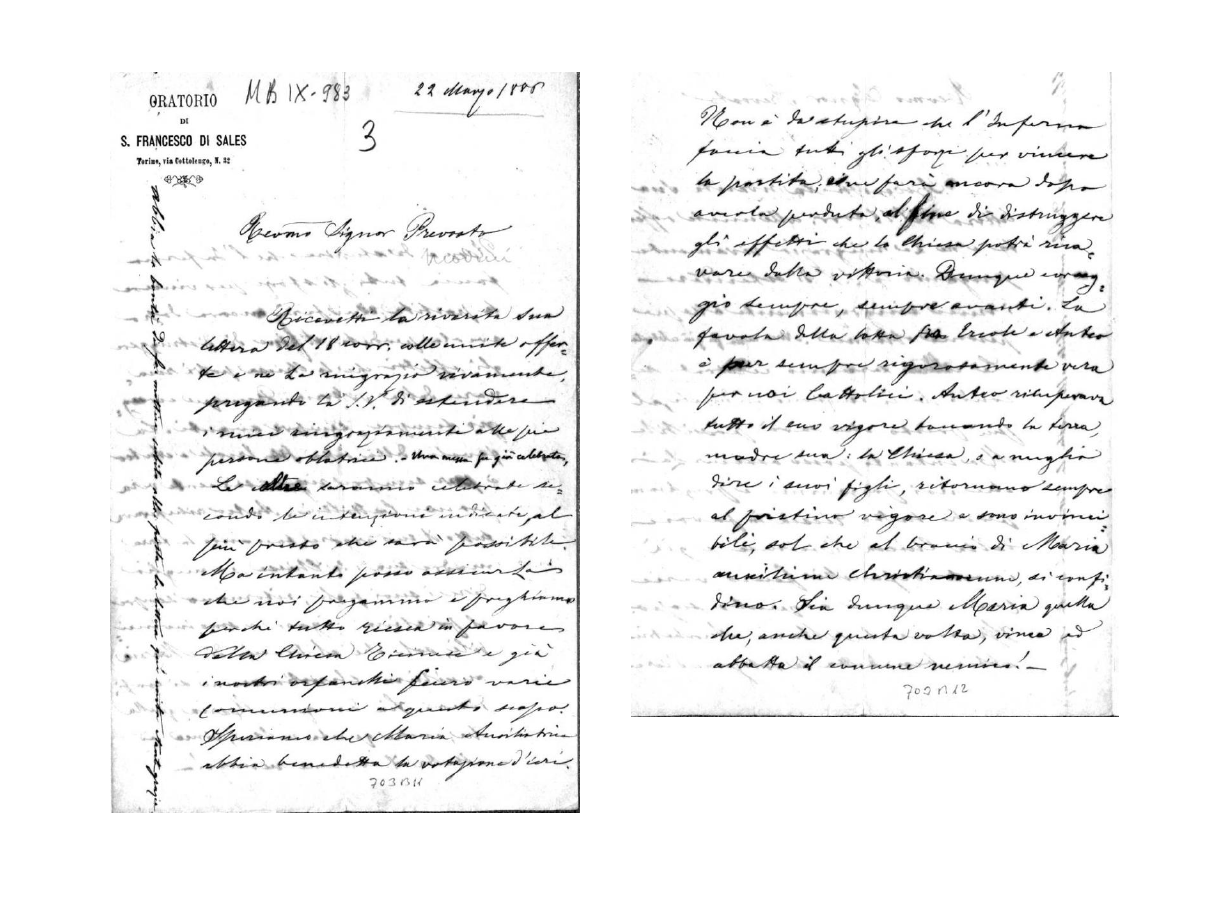 ORATORIO
DI
S. FRANCESCO DI SALES
Torino, via Cottolengo, N. 32
MB IX-983
22 Marzo
3
Revmo Signor Prevosto
Ricevetti la riverita Sua
lettera del 18 corr. colle unite offer-
te e ne La ringrazio vivamente,
pregando la S. V. di estendere
i miei ringraziamenti alle pie
persone oblatrici. Una messa fu già celebrata,
Le altre saranno celebrate se-
condo le intenzioni indicate, al
più presto che sarà possibile.
Ma intanto posso assicurLa
che noi pregammo e preghiamo
perchè tutto riesca in favore
della Chiesa e già
i nostri orfanelli fecero varie
Comunioni a questo scopo.
Speriamo che Maria Ausiliatrice
abbia benedetta la votazione d'ieri.
703 B 11
abbia la bontà di far
Non è da stupire che l'Inferno
faccia tutti gli sforzi per vincere
la partita, e ne farà ancora dopo
averla perduta, al fine di distruggere
gli effetti che la Chiesa potrà rica-
vare dalla vittoria. Dunque corag-
gio sempre, sempre avanti. La
favola della lotta fra Ercole e Anteo
è pur sempre rigorosamente vera
per noi Cattolici. Anteo ricuperava
tutto il suo vigore toccando la terra,
madre sua: la Chiesa, o a meglio
dire i suoi figli, ritornano sempre
al pristino vigore e sono invinci-
bili, sol che al braccio di Maria
auxilium Christianorum, si confi-
dino. Sia dunque Maria quella
che, anche questa volta, vinca ed
abbatta il comune nemico! —
703 B 12